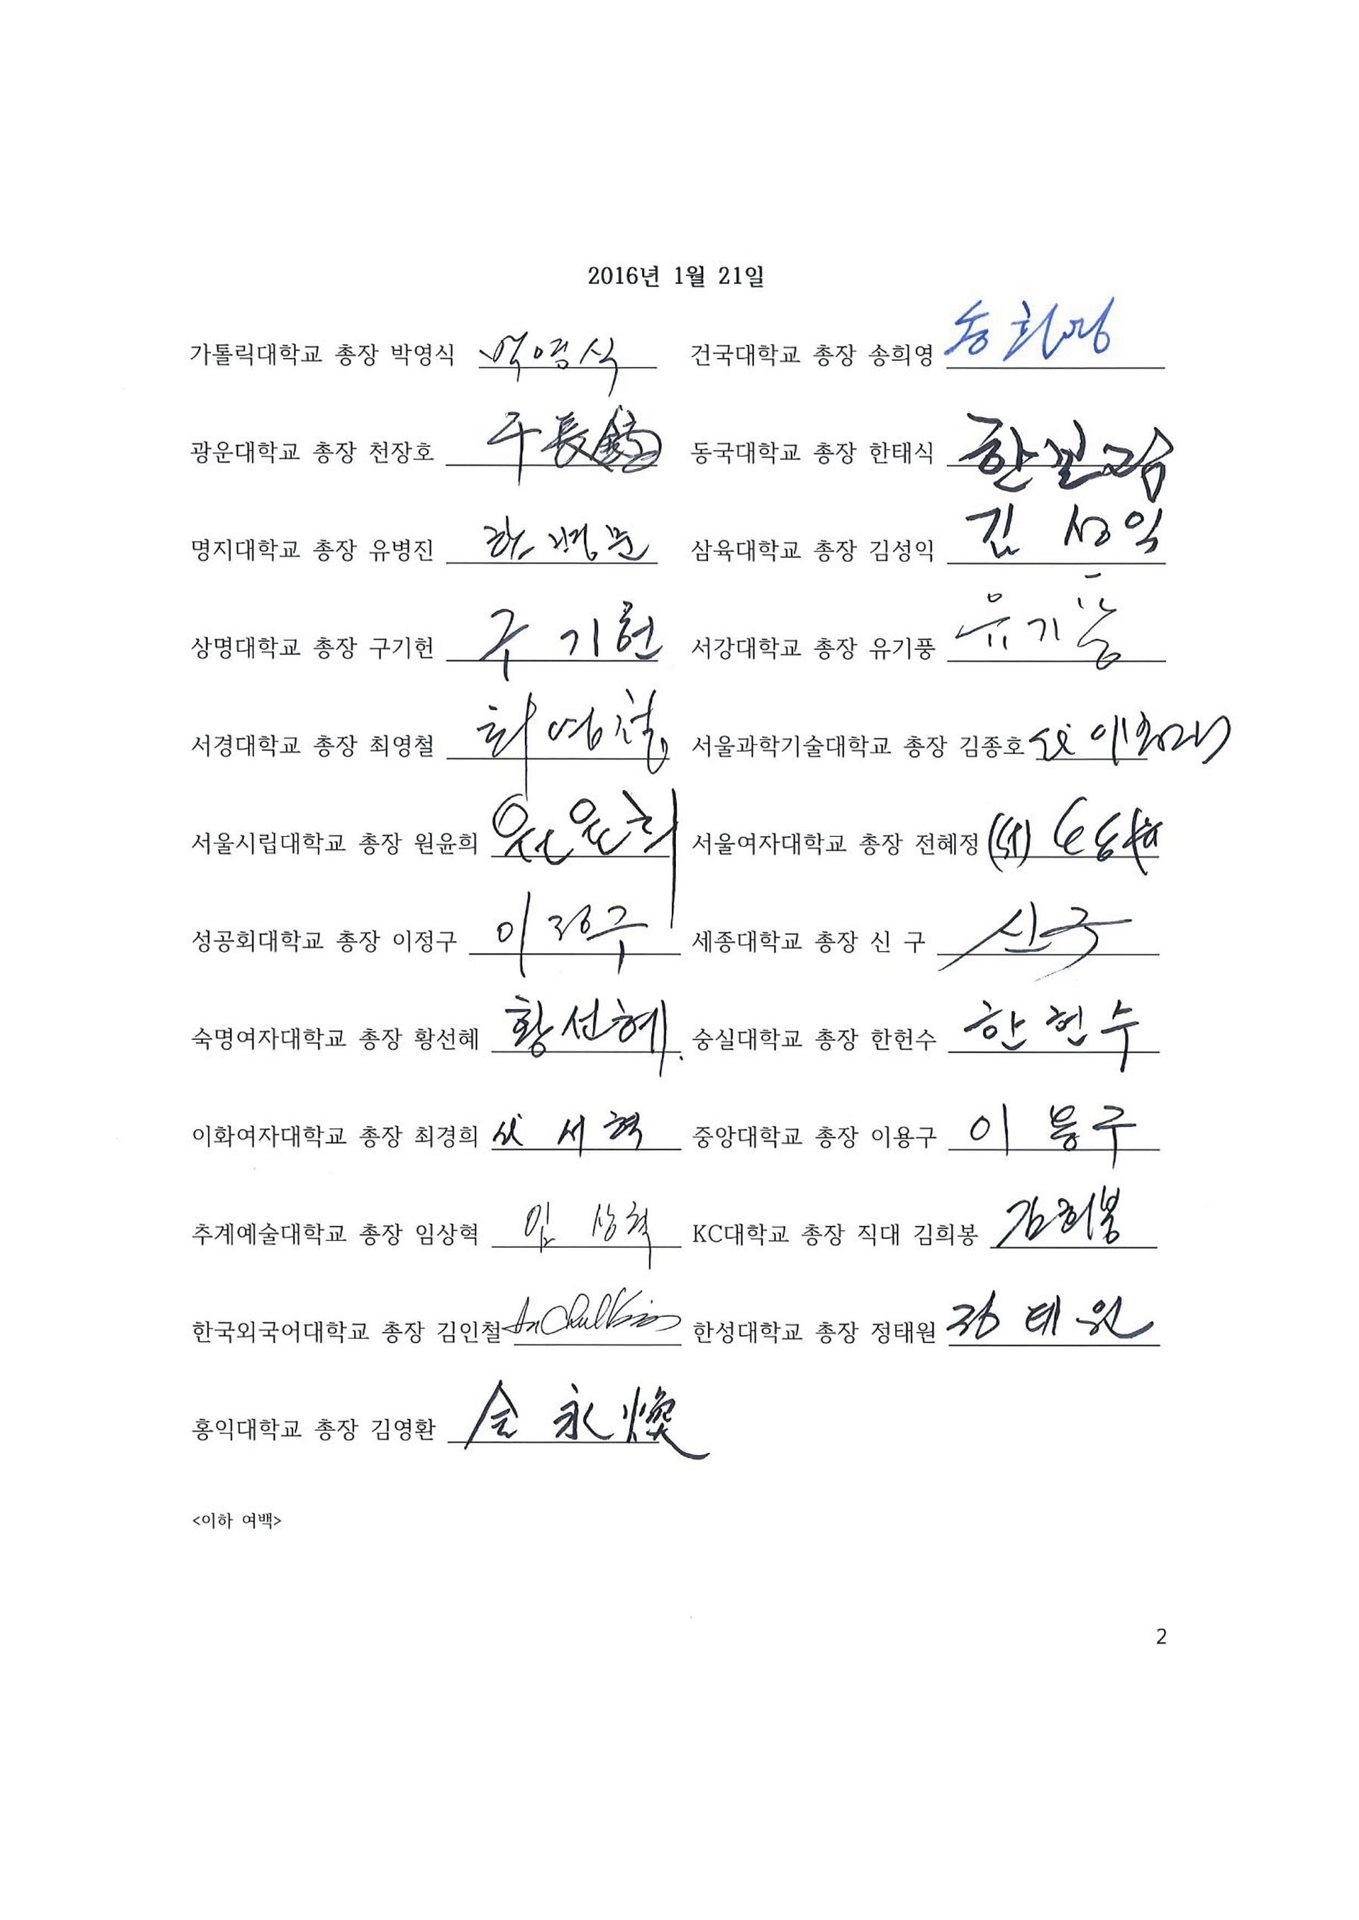 2016년 1월 21일
가톨릭대학교 총장 박영식 박영식 건국대학교 총장 송희영 송희영
광운대학교 총장 천장호 千長鎬 동국대학교 총장 한태식 한보광
명지대학교 총장 유병진 삼육대학교 총장 김성익 김성익
상명대학교 총장 구기헌 구기헌 서강대학교 총장 유기풍 유기풍
서경대학교 총장 최영철 최영철 서울과학기술대학교 총장 김종호
서울시립대학교 총장 원윤희 원윤희 서울여자대학교 총장 전혜정
성공회대학교 총장 이정구 이정구 세종대학교 총장 신 구 신구
숙명여자대학교 총장 황선혜 황선혜 숭실대학교 총장 한헌수 한헌수
이화여자대학교 총장 최경희 서혁 중앙대학교 총장 이용구 이용구
추계예술대학교 총장 임상혁 임상혁 KC대학교 총장 직대 김희봉 김희봉
한국외국어대학교 총장 김인철 In Chul Kim 한성대학교 총장 정태원 정태원
홍익대학교 총장 김영환 金永煥
<이하 여백>
2